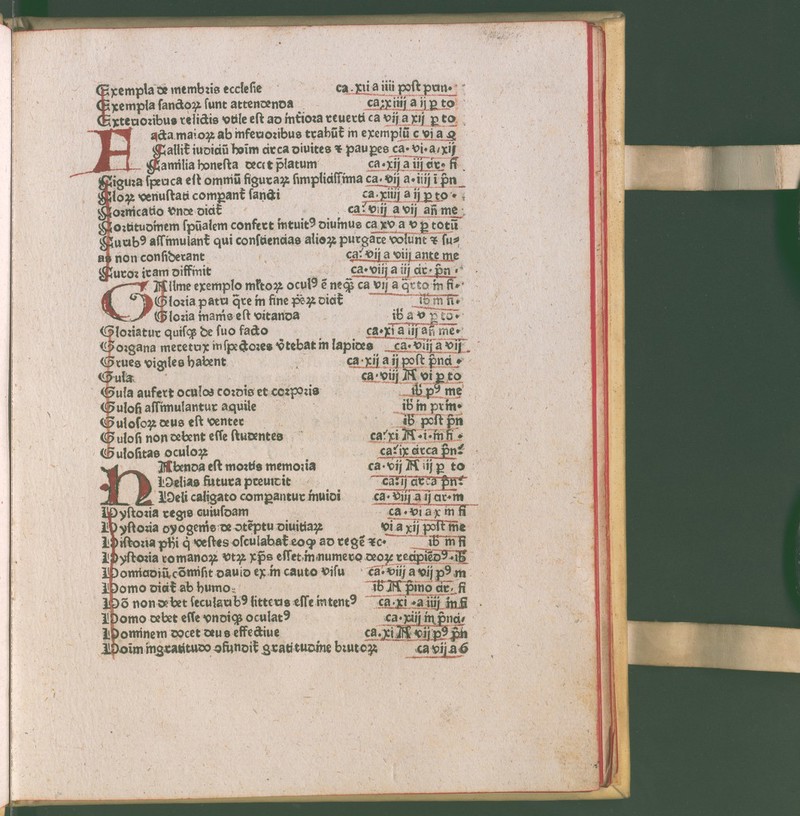 Exempla de membris ecclesie ca. xii a iiii post prin.
Exempla sanctoꝝ sunt attendenda ca. xiiij a ij ꝑ to
Exterioribus relictis vtile est ad inťiora reuerti ca vij a xij ꝑ to
FActa maioꝝ ab inferioribus trahūt̄ in exemplū c vi a
Fallit̄ iudiciū hoīm circa diuites ⁊ paupes ca. vi. a. xij
Familia honesta decet p̄latum ca. xij a iij cir. fi
Figura sperica est omniū figuraꝝ simplicissima ca. vij a. iiij ī p̄n
Floꝝ venustati compant̄ sancti ca. xiiij a ij ꝑ to.
Fornicatio vnde dicit̄ ca. viij a vij an̄ me
Fortitudinem spūalem confert intuitꝰ diuinus ca xv a v ꝑ totū
Furibꝰ assimulant̄ qui consciencias alioꝝ purgare volunt ⁊ su⸗
as non considerant ca. vij a viij ante me
Furor iram diffinit ca. viij a iij cir. p̄n.
GAlline exemplo ml̄toꝝ oculꝰ ē neq̄ꝫ ca vij a q̄rto in fi.
Gloria patri q̄re in fine dicit̄ ib̄ in fi.
Gloria inanis est vitanda ib̄ a v ꝑ to.
Gloriatur quisqꝫ de suo facto ca. xi a iij an̄ me.
Gorgana meretrix inspectores v̄tebat in lapides ca. viij a vij
Grues vigiles habent ca. xij a ij post p̄nci.
Gula ca. viij A vi ꝑ to
Gula aufert oculos cordis et corporis ib̄ pꝰ me
Gulosi assimulantur aquile ib̄ in prin.
Gulosoꝝ deus est venter ib̄ post p̄n
Gulosi non debent esse studentes ca. xi A. i. in fi.
Gulositas oculoꝝ ca. ix circa p̄n.
HAbenda est mortis memoria ca. vij A iij ꝑ to
Helias futura preuidit ca. ij circa p̄n.
Heli caligato comparantur inuidi ca. viij a ij cir. m
Hystoria regis cuiusdam ca. vi a x in fi
Hystoria dyogenis de ꝯtēptu diuitiaꝝ vi a xij post me
Historia ph̄i q̄ vestes osculabat̄ eoqꝫ ad regē ⁊c. ib̄ in fi
Hystoria romanoꝝ vtꝝ xp̄s esset in numero deoꝝ recipiēdꝰ. ib̄
Homicidiū cōmisit dauid ex in cauto visu ca. viij a vij pꝰ m
Homo dicit̄ ab humo: ib̄ A p̄mo cir. fi
Hō non debet secularibꝰ litteris esse intentꝰ ca. xi. a iiij in fi
Homo debet esse vndiqꝫ oculatꝰ ca. xiij in p̄nci.
Hominem docet deus effectiue ca. xi A vij pꝰ p̄n
Hoīm ingratitudo ꝯfundit̄ gratitudine brutoꝝ ca vij a 6